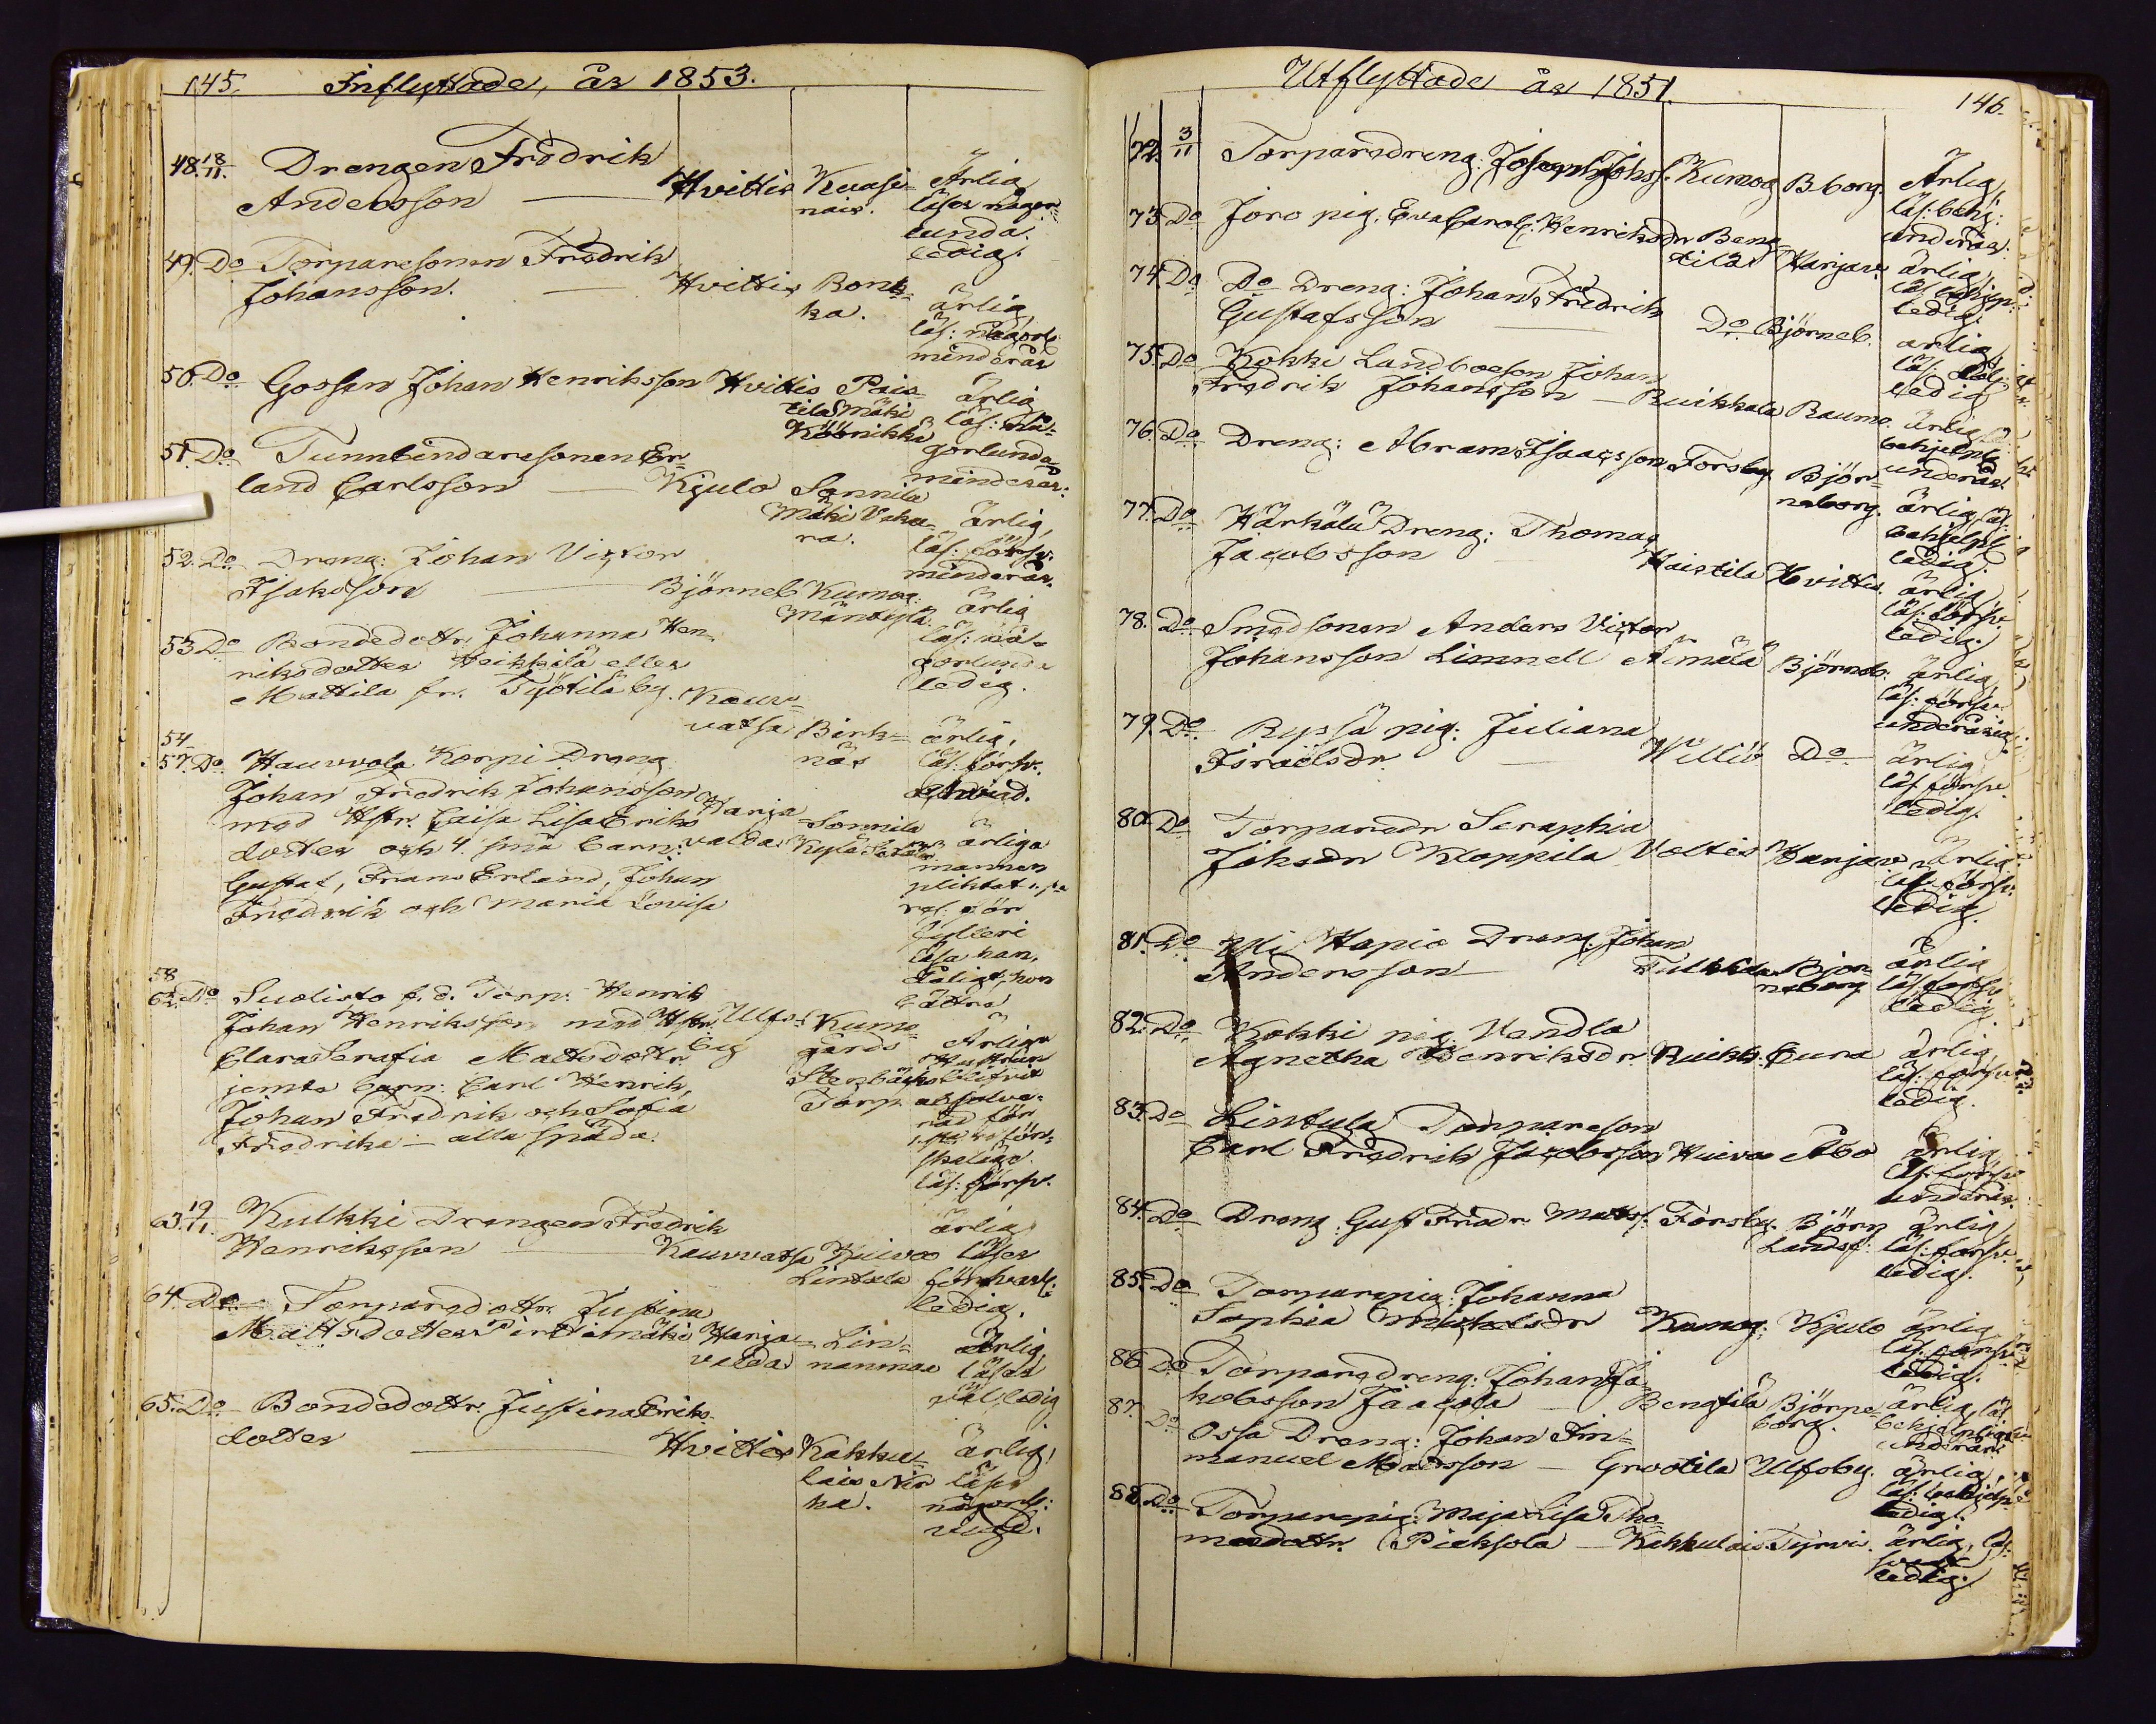 145. Inflyttade, år 1853.
48. 18/11. Drengen Fredrik
Andersson — Hvittis Kuasi-
nais. Ärlig
läser någor-
lunda.
ledig.
49. Do Torparesonen Fredrik
Johansson. — Hvittis Ronk-
ka. ärlig,
läs: någorl:
minderår
50. Do Gossen Johan Henriksson Hvittis Pais-
tila Mäki
Köönikkä ärlig
läs: nå-
gorlunda
minderår:
51. Do Tunnbindaresonen Er-
land Carlsson — Kjulo Sonnila
Mäki Vaha-
ra. ärlig,
läs: försv:
minderår.
52. Do Dreng: Johan Victor
Isaksson — Björneb Kumog:
Mäntylä. ärlig
läs: nå-
gorlunda
ledig.
53 Do Bondedottr. Johanna Hen-
riksdotter Heikkilä eller
Mattila fr. Työtilä by. Kauv-
vatsa Birk-
näs ärlig,
läs: försv.
54
57. Do Hauvvola Korpi Dreng
Johan Fredrik Johansson
med Hstr. Caisa Lisa Eriks
dotter och 4 små barn:
Gustaf, Frans Erland, Johan
Fredrik och Maria Lovisa
Harja-
valda Sonnila
Kylä
ärliga
mannen
pliktat
för
fylleri
läsa han,
dåligt, hon
bättre
58
62. Do Suolisto f. d. Torp: Henrik
Johan Henriksson med Hstr.
Clara Serafia Mattsdottr.
jemte barn: Carl Henrik,
Johan Fredrik och Sofia
Fredrika — alla späda.
Ulfs-
by Kumo
gårds
Stenbäcks
Torp Ärliga
Hustrun
blifvit
absolve-
rad för
läs: försv.
63. 19/11 Kulkki Drengen Fredrik
Henriksson — Kauvvatsa Kuivo
Lintala ärlig
läser
försvarl:
ledig.
64. Do — Torparedottr. Justina
Mattsdotter Pirttimäki Harja-
valda Lin-
nanmaa Ärlig
läser
väl, ledig
65. Do — Bondedottr. Justina Eriks-
dotter — Hvittis Kakku-
lais
ka. ärlig,
läser
någorl:
Utflyttade år 1851. 146.
72. 3/11 Torparedreng: Joseph Johss. Kumog Bborg. Ärlig,
läs: behj:
underår.
73. Do Joro pig. Eva Carol: Henriksdr Beng-
tilä Harjav. ärlig,
läs behjep:
ledig.
74. Do Do Dreng: Johan Fredrik
Gustafsson — Do. Björneb. ärlig,
läs:
ledig
75. Do Kokki Landboeson Johan
Fredrik Johansson — Ruikkala Raumo. ärlig
behjelpl
underår.
76. Do Dreng: Abram Isaacsson Forsby Björ-
neborg. ärlig, läs:
behjelpl
ledig.
77. Do Härkälä Dreng: Thomas
Jacobsson — Haistila Hvittis. ärlig,
läs: försv.
ledig.
78. Do Smedsonen Anders Victor
Johansson Limnell Aimälä Björneb: ärlig,
läs: försv.
underårig
79. Do Ryssä pig: Juliana
Israelsdr. — Villiö Do ärlig
läs försv.
ledig.
80. Do Torparedr Seraphia
Johsdr Kloppila Voltis Harjav. ärlig
läs försv.
ledig.
81. Do Yli Hapio Dreng. Johan
Andersson — Tulkkila Björ-
neborg ärlig
läs försv
ledig
82. Do Kokki pig. Vendla
Agnetha Henriksdr. Ruikk: Eura ärlig
läs: försv:
ledig.
83. Do Lintula Torpareson
Carl Fredrik Jacobsson Kuivo Åbo ärlig
läs: försv
underår.
84. Do Dreng. Gust Fredr. Matss. Forsby. Björn
Lands: ärlig
läs: försv.
ledig.
85. Do Torparepig: Johanna
Sophia Michelsdr Kumog: Kjulo ärlig,
läs: försv.
ledig.
86 Do Torparedreng: Johan Ja-
kobsson Jaacola — Bengtilä Björne-
borg. ärlig, läs
behjelpligt
underår
87. Do Ossa Dreng: Johan Im-
manuel Matsson — Grootila Ulfsby. ärlig,
läs: behjelp
ledig.
88. Do Torparepig: Maja Lisa Tho-
masdottr. Pieksola — Kakkulais Tyrvis. ärlig, läs:
ledig.